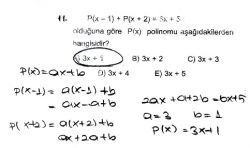 11. P(x - 1) + P(x + 2) = 6x + 5
olduğuna göre P(x) polinomu aşağıdakilerden
hangisidir?
A) 3x + 1 B) 3x + 2 C) 3x + 3
D) 3x + 4 E) 3x + 5
P(x) = ax + b
P(x-1) = a(x-1) + b
= ax - a + b
P(x+2) = a(x+2) + b
ax + 2a + b
2ax + a + 2b = 6x + 5
a = 3 b = 1
P(x) = 3x + 1